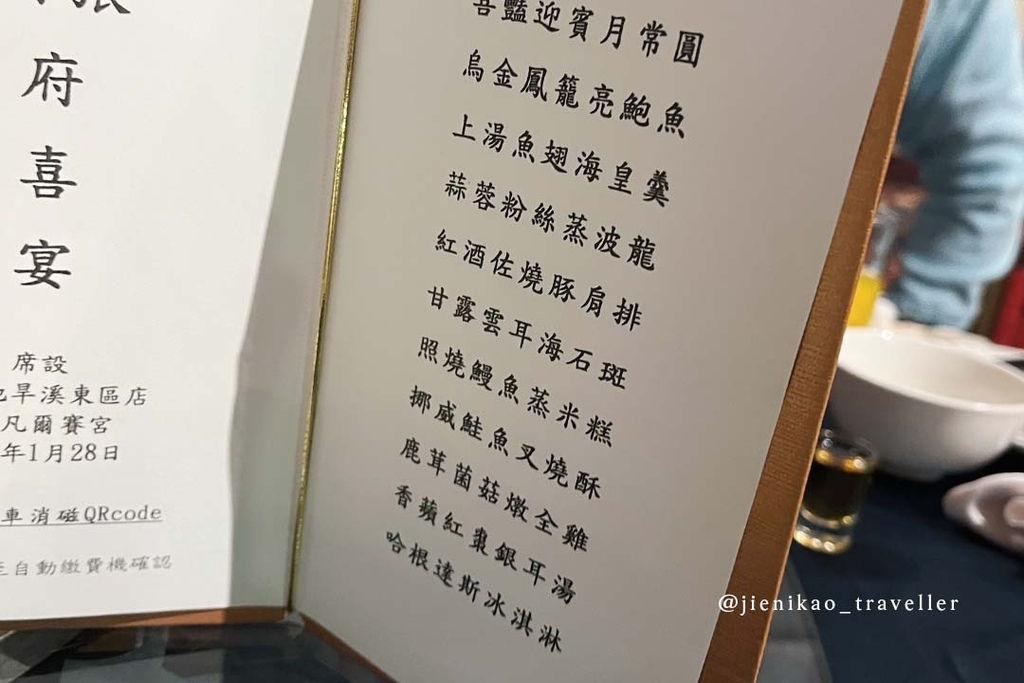 府
喜
宴
席設
旱溪東區店
凡爾賽宮
年1月28日
車消磁QRcode
至自動繳費機確認
喜豔迎賓月常圓
烏金鳳籠亮鮑魚
上湯魚翅海皇羹
蒜蓉粉絲蒸波龍
紅酒佐燒豚肩排
甘露雲耳海石斑
照燒鰻魚蒸米糕
挪威鮭魚叉燒酥
鹿茸菌菇燉全雞
香蘋紅棗銀耳湯
哈根達斯冰淇淋
@jienikao_traveller